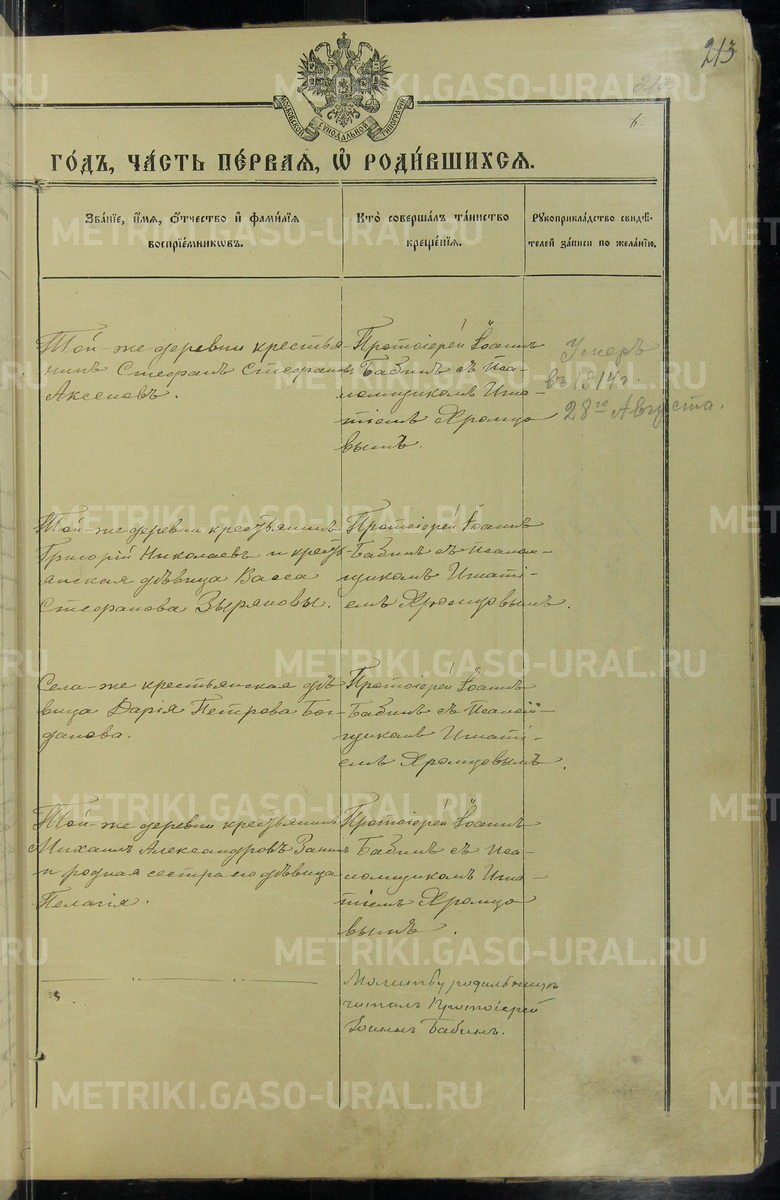 213
6.
МОСКОВСКОЙ СѴНОДАЛЬНОЙ ТИПОГРАФІИ
ГО́ДЪ, ЧА́СТЬ ПЕ́РВАѦ, Ѡ҆ РОДИ́ВШИХСѦ.
Зва́нїе, и҆́мѧ, ѻ҆́тчество и҆ фами́лїѧ
воспрїе́мникѡвъ.
Кто̀ соверша́лъ та́инство
креще́нїѧ.
Рꙋкоприкла́дство свидѣ́-
телей за́писи по жела́нїю.
Той-же деревни крестья-
нинъ Стефанъ Стефановъ
Аксеновъ.
Протоіерей Іоаннъ
Бабинъ съ Пса-
ломщикомъ Игна-
тіемъ Хромцо
вымъ.
Умеръ
въ 1914 г.
28го Августа.
Той-же деревни крестьянинъ
Григорій Николаевъ и кресть-
янская дѣвица Васса
Стефанова Зыряновы.
Протоіерей Іоаннъ
Бабинъ съ Псалом-
щикомъ Игнаті-
емъ Хромцовымъ.
Села-же крестьянская дѣ-
вица Дарія Петрова Бог-
данова.
Протоіерей Іоаннъ
Бабинъ съ Псалом-
щикомъ Игнаті-
емъ Хромцовымъ.
Той-же деревни крестьянинъ
Михаилъ Александровъ
и родная сестра его дѣвица
Пелагія.
Протоіерей Іоаннъ
Бабинъ съ Пса-
ломщикомъ Игна-
тіемъ Хромцо
вымъ.
Молитву родильницѣ
читалъ Протоіерей
Іоаннъ Бабинъ.
METRIKI.GASO-URAL.RU